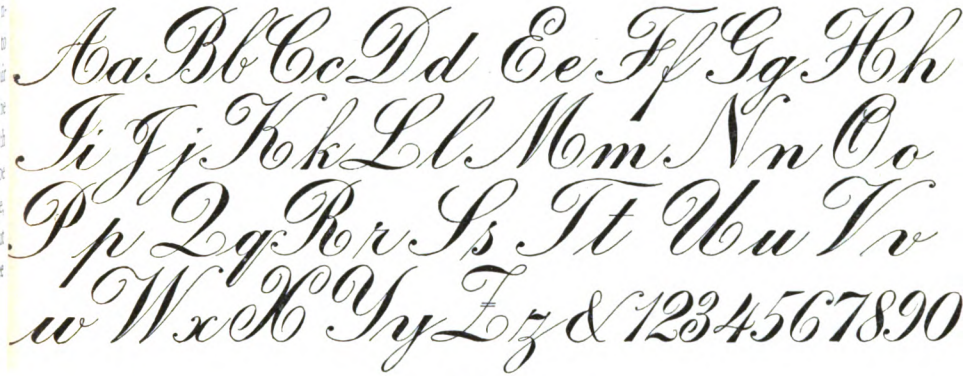 Aa Bb Cc Dd Ee Ff Gg Hh
Ii Jj Kk Ll Mm Nn Oo
Pp Qq Rr Ss Tt Uu Vv
w W x X Yy Zz & 1234567890